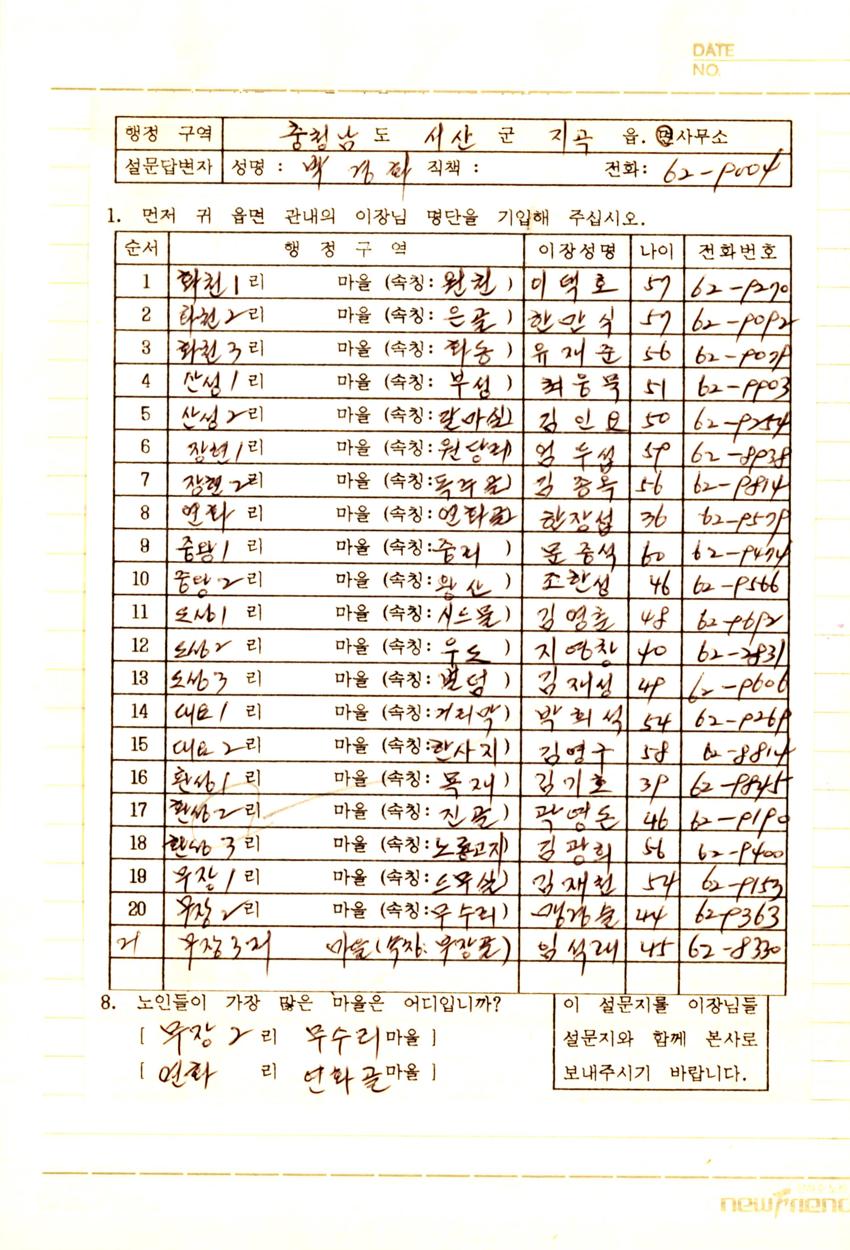 DATE
NO.
행정 구역 충청남 도 서산 군 지곡 읍. 면사무소
설문답변자 성명 : 백 경화 직책 : 전화: 62-9004
1. 먼저 귀 읍면 관내의 이장님 명단을 기입해 주십시오.
순서 행 정 구 역 이장성명 나이 전화번호
1 화천 1 리 마을 (속칭: 원천 ) 이 덕 호 57 62-9270
2 화천 2 리 마을 (속칭: 은골 ) 한 만 식 57 62-9092
3 화천 3 리 마을 (속칭: 화동 ) 유 재 준 56 62-9079
4 산성 1 리 마을 (속칭: 부성 ) 최 웅 묵 51 62-9903
5 산성 2 리 마을 (속칭: 갈마실) 김 인 50 62-9254
6 장현 1 리 마을 (속칭: 원당리 엄 두 섭 59 62-8938
7 장현 2 리 마을 (속칭: 독주골) 김 종 옥 56 62-9814
8 연화 리 마을 (속칭: 연화골) 한장섭 36 62-9579
9 중왕 1 리 마을 (속칭: 중리 ) 문 종 식 60 62-9474
10 중왕 2 리 마을 (속칭: 왕산 ) 조한성 46 62-9566
11 도성 1 리 마을 (속칭: ) 김 영 48 62-9692
12 도성 2 리 마을 (속칭: 우도 ) 지 영창 40 62-2831
13 도성 3 리 마을 (속칭: ) 김 재성 49 62-9606
14 대요 1 리 마을 (속칭: 거리막) 박 희 석 54 62-9269
15 대요 2 리 마을 (속칭: 한사지) 김영구 58 62-8814
16 환성 1 리 마을 (속칭: 목재 ) 김 기 호 39 62-9845
17 환성 2 리 마을 (속칭: 진골 ) 곽 영돈 46 62-9190
18 환성 3 리 마을 (속칭: 노룡고지 김 광희 56 62-9400
19 무장 1 리 마을 (속칭: ) 김 재천 54 62-9153
20 무장 2 리 마을 (속칭: 무수리 ) 44 62-9363
21 무장 3 리 마을 (속칭: 무장골 ) 임 석래 45 62-8330
8. 노인들이 가장 많은 마을은 어디입니까?
[ 무장 2 리 무수리 마을 ]
[ 연화 리 연화골 마을 ]
이 설문지를 이장님들
설문지와 함께 본사로
보내주시기 바랍니다.
newfriend